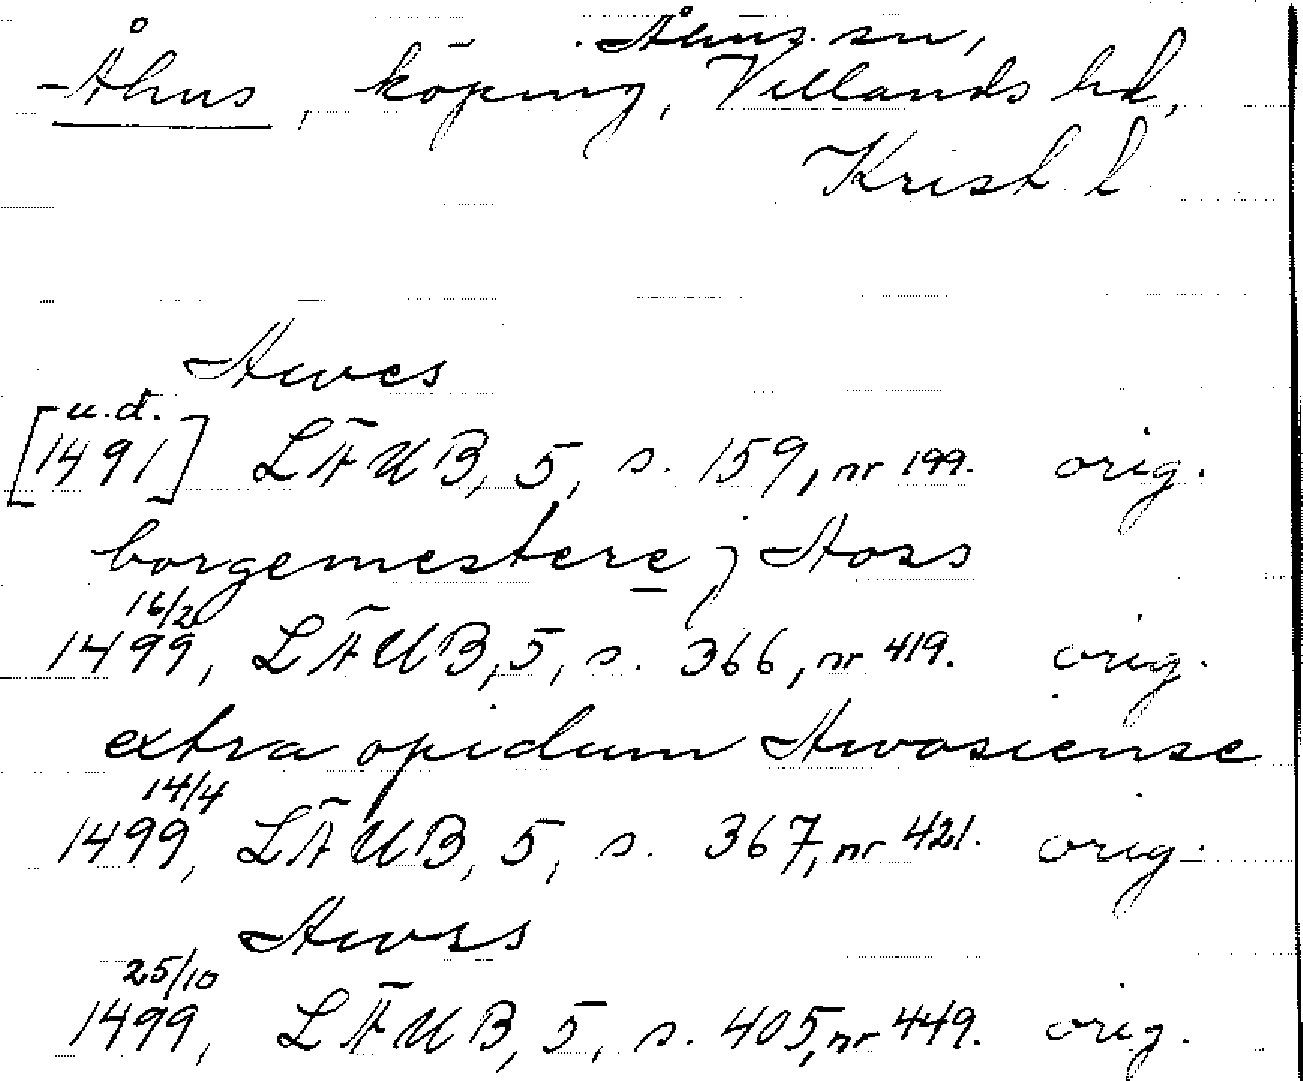 Åhus sn,
Åhus, köping, Villands hd,
Krist. l
Awes
u.d.
[1491] LÄUB, 5, s. 159, nr 199. orig.
borgemestere j Aoss
16/2
1499, LÄUB, 5, s. 366, nr 419. orig.
extra opidum Awosiense
14/4
1499, LÄUB, 5, s. 367, nr 421. orig.
Awss
25/10
1499, LÄUB, 5, s. 405, nr 449. orig.